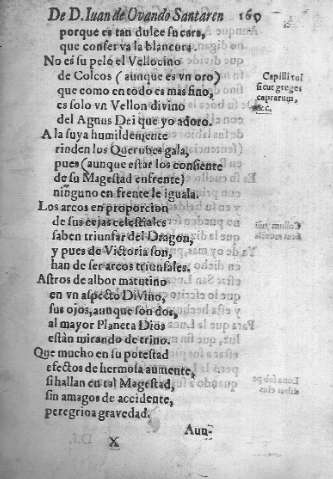 De D. Iuan de Ovando Santaren 169
porque es tan dulce su cara,
que conserva la blancura.
No es su pelo el Vellocino
de Colcos (aunque es vn oro)
que como en todo es mas fino,
es solo vn Vellon divino
del Agnus Dei que yo adoro.
Capilli tui
sicut greges
caprarum,
&c.
A la suya humildemente
rinden los Querubes gala,
pues (aunque estar los consiente
de su Magestad enfrente)
ninguno en frente le iguala.
Los arcos en proporcion
de sus cejas celestiales
saben triunfar del Dragon,
y pues de Victoria son,
han de ser arcos triunfales.
Astros de albor matutino
en vn aspecto Divino,
sus ojos, aunque son dos,
al mayor Planeta Dios
estàn mirando de trino.
Que mucho en su potestad
efectos de hermosa aumente,
si hallan en tal Magestad,
sin amagos de accidente,
peregrina gravedad.
X Aun-